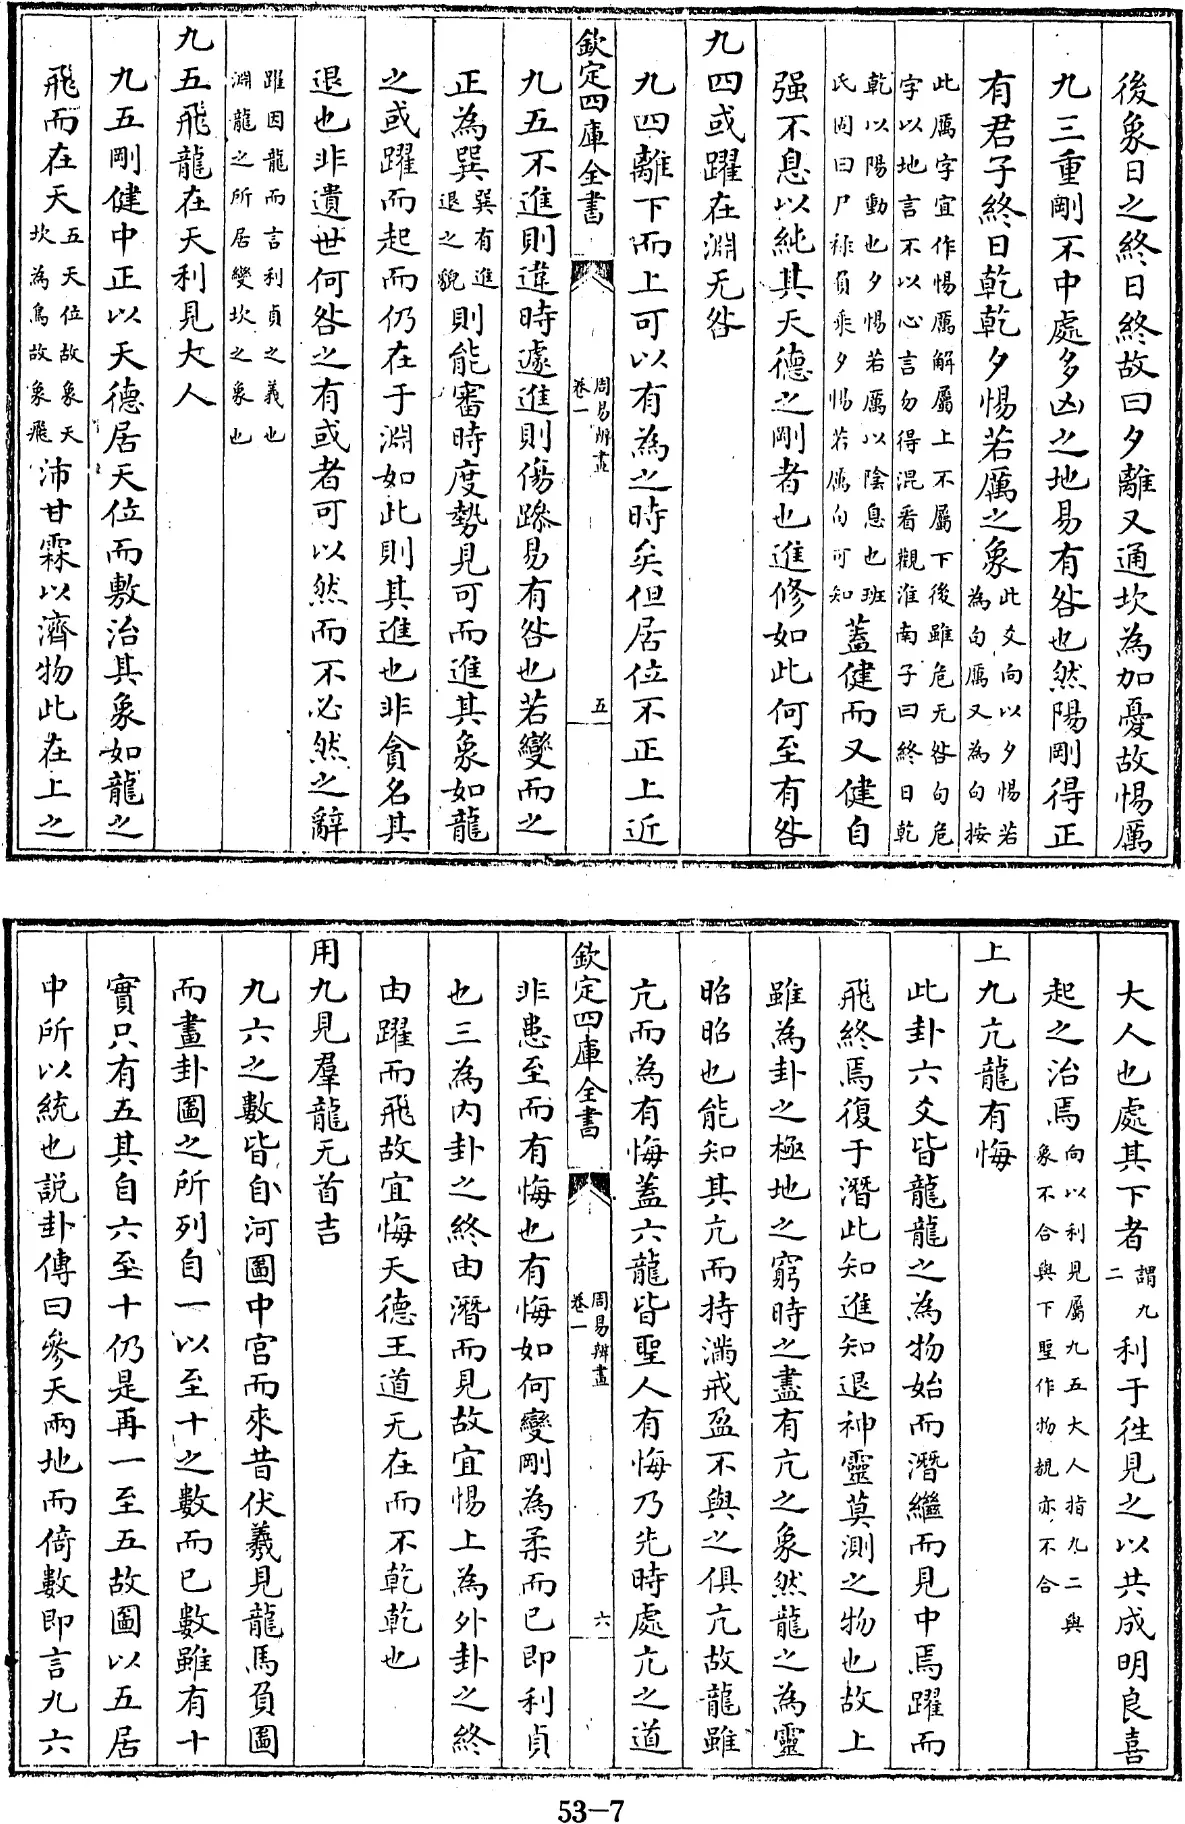 後象日之終日終故曰夕離又通坎為加憂故惕厲
九三重剛不中處多凶之地易有咎也然陽剛得正
有君子終日乾乾夕惕若厲之象此爻向以夕惕若為句厲又為句按
此厲字宜作惕厲解屬上不屬下後雖危无咎句危字以地言不以心言勿得混看觀淮南子曰終日乾
乾以陽動也夕惕若厲以陰息也班氏固曰尸祿負乘夕惕若厲句可知蓋健而又健自
强不息以純其天德之剛者也進修如此何至有咎
九四或躍在淵无咎
九四離下而上可以有為之時矣但居位不正上近
欽定四庫全書
周易辨畫
卷一
五
九五不進則違時遽進則傷躁易有咎也若變而之
正為巽巽有進退之貌則能審時度勢見可而進其象如龍
之或躍而起而仍在于淵如此則其進也非貪名其
退也非遺世何咎之有或者可以然而不必然之辭
雖因龍而言利貞之義也淵龍之所居變坎之象也
九五飛龍在天利見大人
九五剛健中正以天德居天位而敷治其象如龍之
飛而在天五天位故象天坎為鳥故象飛沛甘霖以濟物此在上之
大人也處其下者謂九二利于往見之以共成明良喜
起之治焉向以利見屬九五大人指九二與象不合與下聖作物覩亦不合
上九亢龍有悔
此卦六爻皆龍龍之為物始而潛繼而見中焉躍而
飛終焉復于潛此知進知退神靈莫測之物也故上
雖為卦之極地之窮時之盡有亢之象然龍之為靈
昭昭也能知其亢而持滿戒盈不與之俱亢故龍雖
亢而為有悔蓋六龍皆聖人有悔乃先時處亢之道
欽定四庫全書
周易辨畫
卷一
六
非患至而有悔也有悔如何變剛為柔而已即利貞
也三為内卦之終由潛而見故宜惕上為外卦之終
由躍而飛故宜悔天德王道无在而不乾乾也
用九見羣龍无首吉
九六之數皆自河圖中宮而來昔伏羲見龍馬負圖
而畫卦圖之所列自一以至十之數而已數雖有十
實只有五其自六至十仍是再一至五故圖以五居
中所以統也説卦傳曰參天兩地而倚數即言九六
53-7